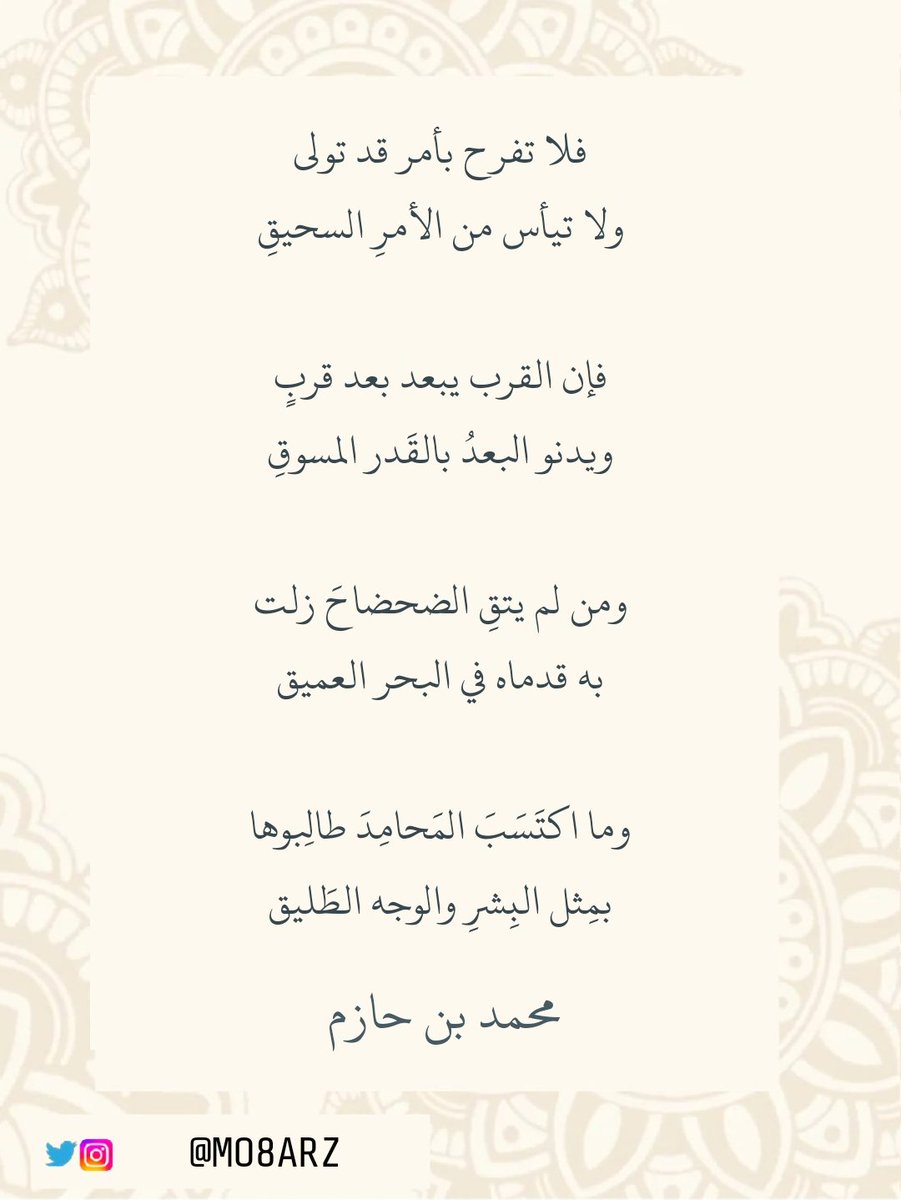 فلا تفرح بأمر قد تولى
ولا تيأس من الأمرِ السحيقِ
فإن القرب يبعد بعد قربٍ
ويدنو البعدُ بالقَدر المسوقِ
ومن لم يتقِ الضحضاحَ زلت
به قدماه في البحر العميق
وما اكتَسَبَ المَحامِدَ طالِبوها
بمِثل البِشرِ والوجه الطَليق
محمد بن حازم
@MO8ARZ